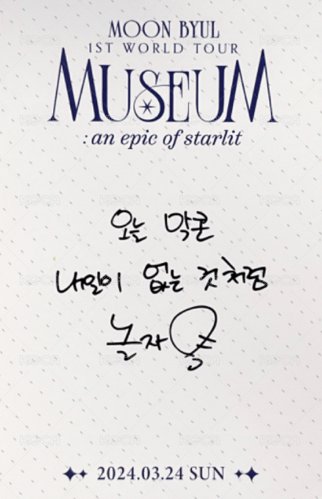 MOON BYUL
1ST WORLD TOUR
MUSEUM
: an epic of starlit
오늘 막콘
내일이 없는 것처럼
놀자
2024.03.24 SUN